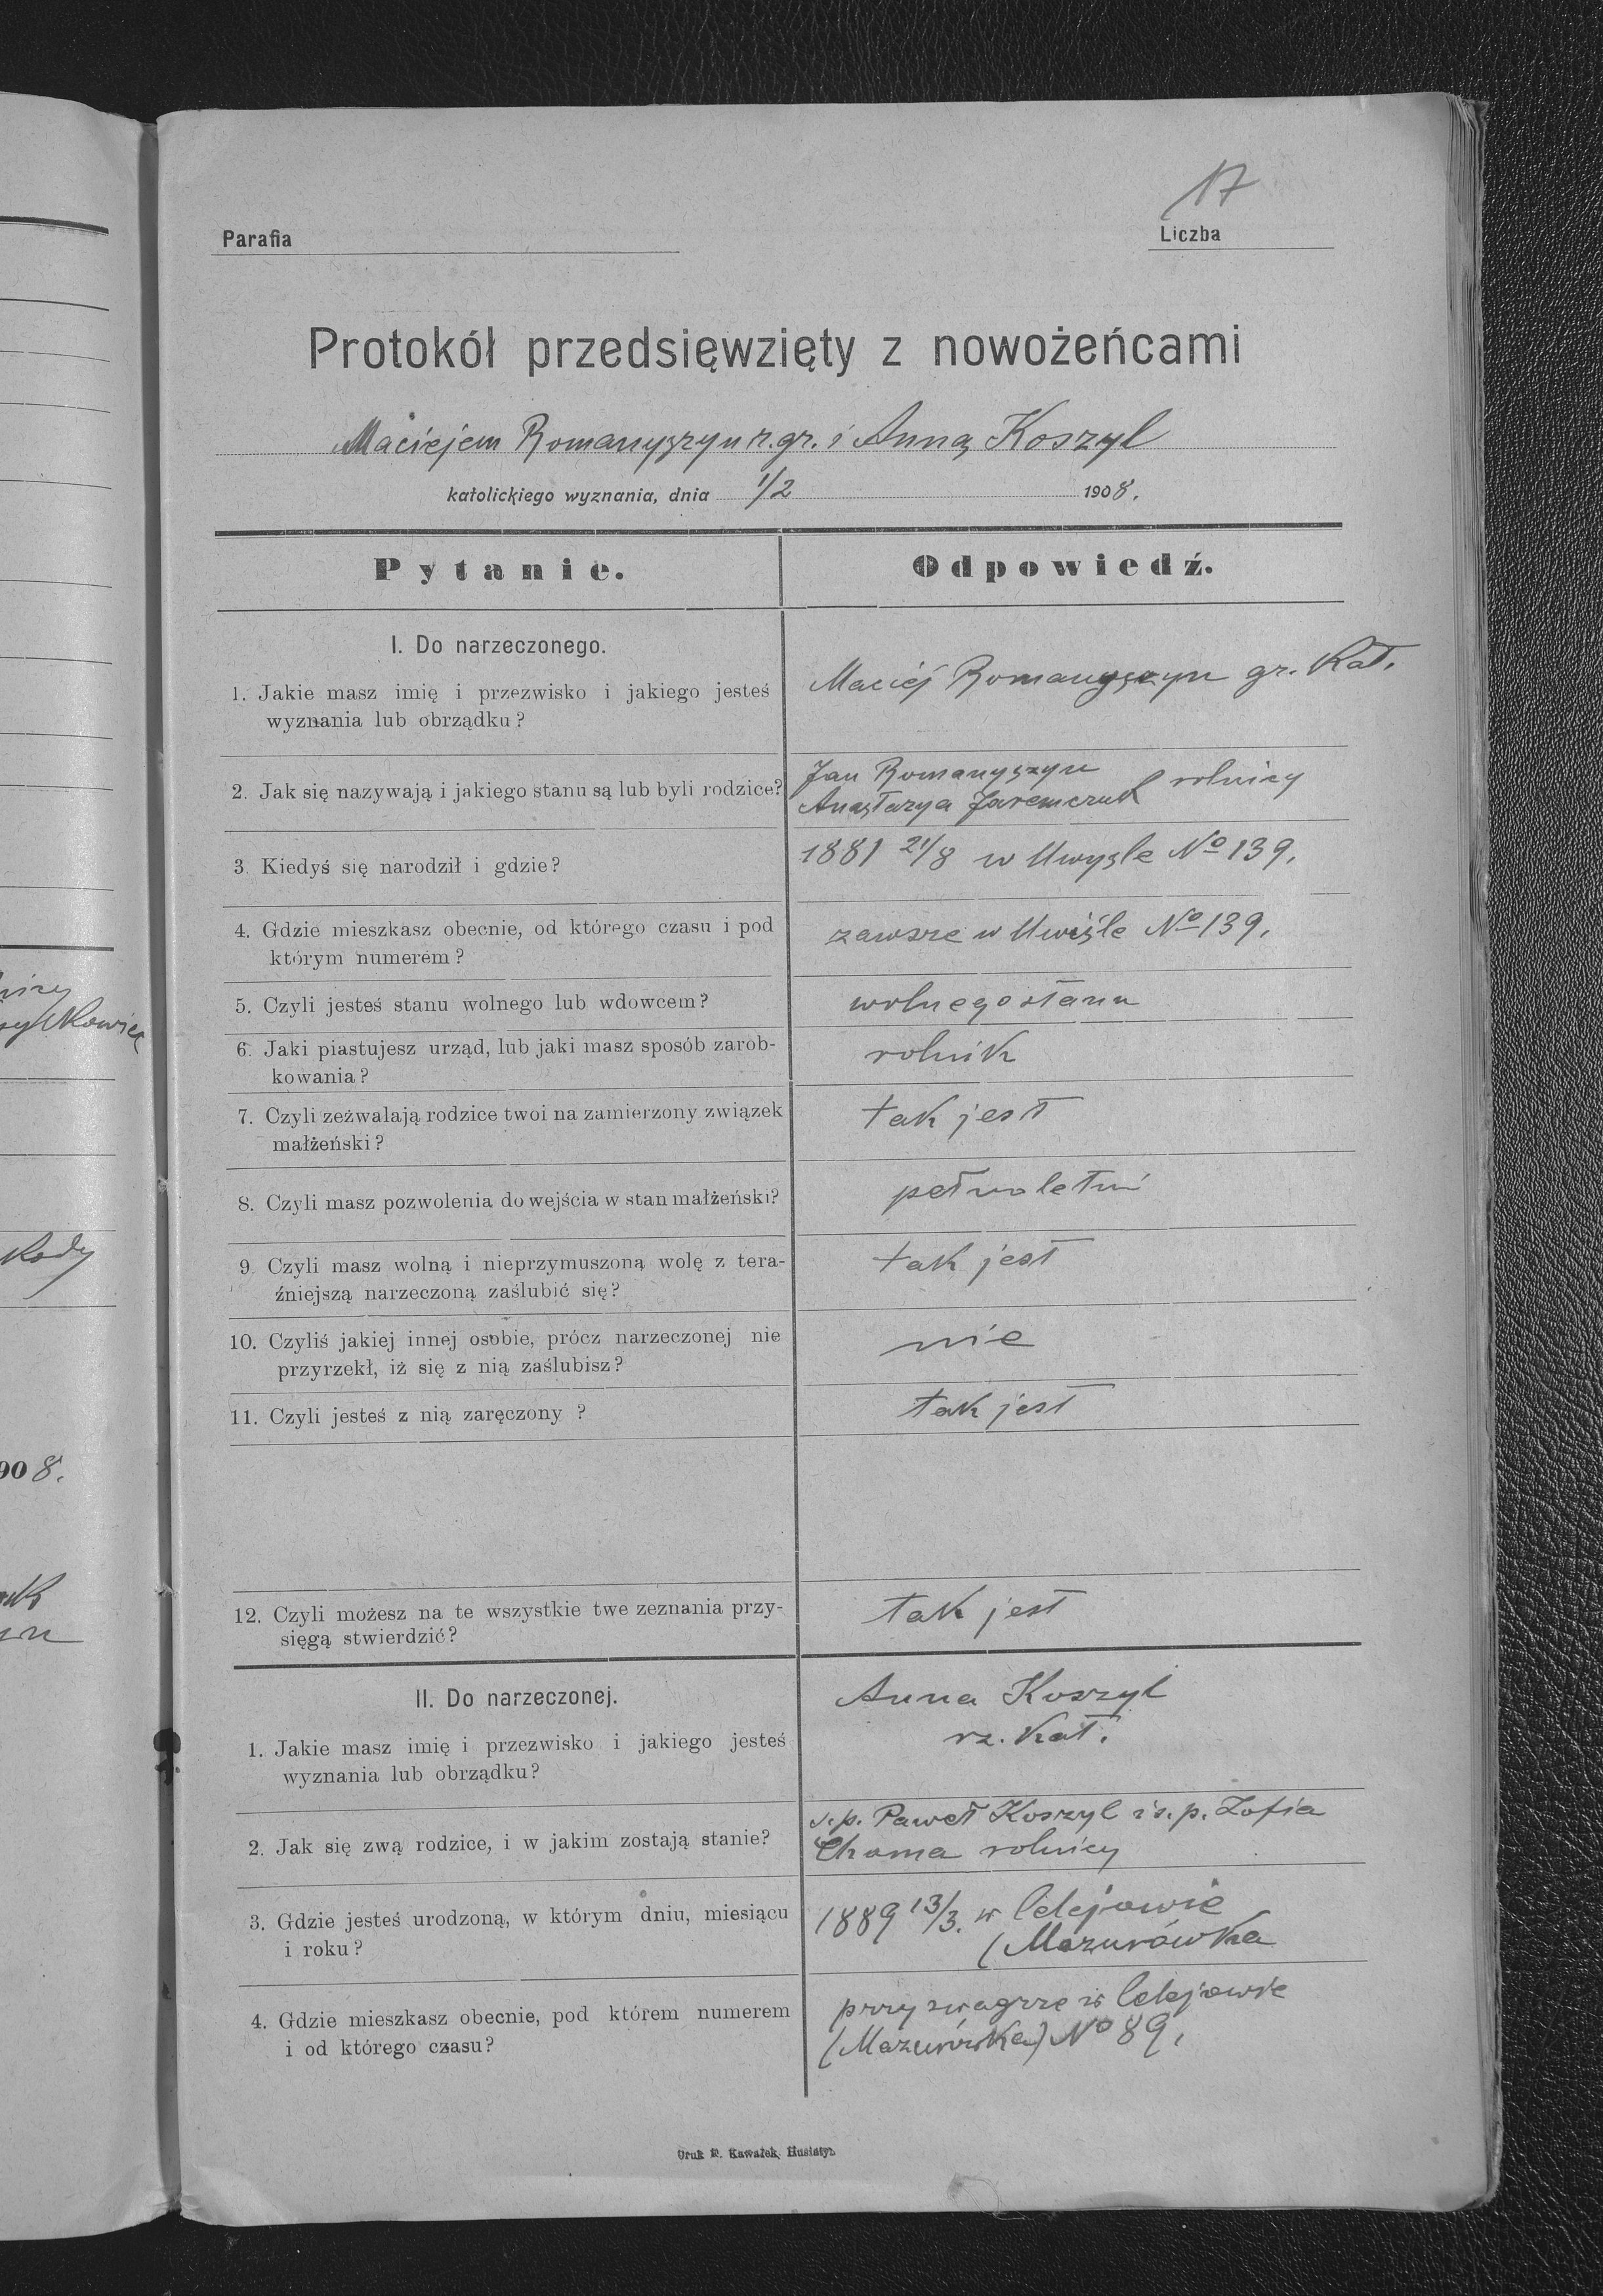 17
Parafia
Liczba
Protokół przedsięwzięty z nowożeńcami
Maciejem Romanyszyn r. gr. i Anną Koszyl
katolickiego wyznania, dnia 1/2 1908.
Pytanie.
Odpowiedź.
I. Do narzeczonego.
1. Jakie masz imię i przezwisko i jakiego jesteś
wyznania lub obrządku?
Maciej Romanyszyn gr. kat.
2. Jak się nazywają i jakiego stanu są lub byli rodzice?
Jan Romanyszyn
Anastazya Jaremczuk rolnicy
3. Kiedyś się narodził i gdzie?
1881 21/8 w Uwysle No 139.
4. Gdzie mieszkasz obecnie, od którego czasu i pod
którym numerem?
zawsze w Uwiśle No 139.
5. Czyli jesteś stanu wolnego lub wdowcem?
wolnego stanu
6. Jaki piastujesz urząd, lub jaki masz sposób zarob-
kowania?
rolnik
7. Czyli zeźwalają rodzice twoi na zamierzony związek
małżeński?
tak jest
8. Czyli masz pozwolenia do wejścia w stan małżeński?
pełnoletni
9. Czyli masz wolną i nieprzymuszoną wolę z tera-
źniejszą narzeczoną zaślubić się?
tak jest
10. Czyliś jakiej innej osobie, prócz narzeczonej nie
przyrzekł, iż się z nią zaślubisz?
nie
11. Czyli jesteś z nią zaręczony ?
tak jest
12. Czyli możesz na te wszystkie twe zeznania przy-
sięgą stwierdzić?
tak jest
II. Do narzeczonej.
1. Jakie masz imię i przezwisko i jakiego jesteś
wyznania lub obrządku?
Anna Koszyl
rz. kat.
2. Jak się zwą rodzice, i w jakim zostają stanie?
s.p. Paweł Koszyl i s.p. Zofia
Choma rolnicy
3. Gdzie jesteś urodzoną, w którym dniu, miesiącu
i roku?
1889 13/3. w Celejowie
(Mazurówka
4. Gdzie mieszkasz obecnie, pod którem numerem
i od którego czasu?
przy szwagrze w Celejowie
(Mazurówka) No 89,
Druk F. Kawałek, Husiatyn
908.
kody